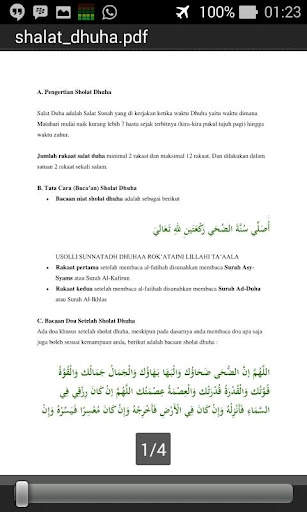 100% 01:23
shalat_dhuha.pdf
A. Pengertian Sholat Dhuha
Salat Duha adalah Salat Sunah yang di kerjakan ketika waktu Dhuha yaitu waktu dimana
Matahari mulai naik kurang lebih 7 hasta sejak terbitnya (kira-kira pukul tujuh pagi) hingga
waktu zuhur.
Jumlah rakaat salat duha minimal 2 rakaat dan maksimal 12 rakaat. Dan dilakukan dalam
satuan 2 rakaat sekali salam.
B. Tata Cara (Baca'an) Sholat Dhuha
• Bacaan niat sholat dhuha adalah sebagai berikut
أُصَلِّي سُنَّةَ الضُّحَى رَكْعَتَيْنِ لِلَّهِ تَعَالَى
USOLLI SUNNATADH DHUHAA ROK'ATAINI LILLAHI TA'AALA
• Rakaat pertama setelah membaca al-fatihah disunnahkan membaca Surah Asy-
Syams atau Surah Al-Kafirun
• Rakaat kedua setelah membaca al-fatihah disunahkan membaca Surah Ad-Duha
atau Surah Al-Ikhlas
C. Bacaan Doa Setelah Sholat Dhuha
Ada doa khusus setelah sholat dhuha, meskipun pada dasarnya anda membaca doa apa saja
juga boleh sesuai kemampuan anda, berikut adalah bacaan sholat dhuha :
اللَّهُمَّ إِنَّ الضُّحَى ضَحَاؤُكَ وَالْبَهَا بَهَاؤُكَ وَالْجَمَالَ جَمَالُكَ وَالْقُوَّةَ
قُوَّتُكَ وَالْقُدْرَةَ قُدْرَتُكَ وَالْعِصْمَةَ عِصْمَتُكَ اللَّهُمَّ إِنْ كَانَ رِزْقِي فِي
السَّمَاءِ فَأَنْزِلْهُ وَإِنْ كَانَ فِي الْأَرْضِ فَأَخْرِجْهُ وَإِنْ كَانَ مُعْسِرًا فَيَسِّرْهُ وَإِنْ
1/4